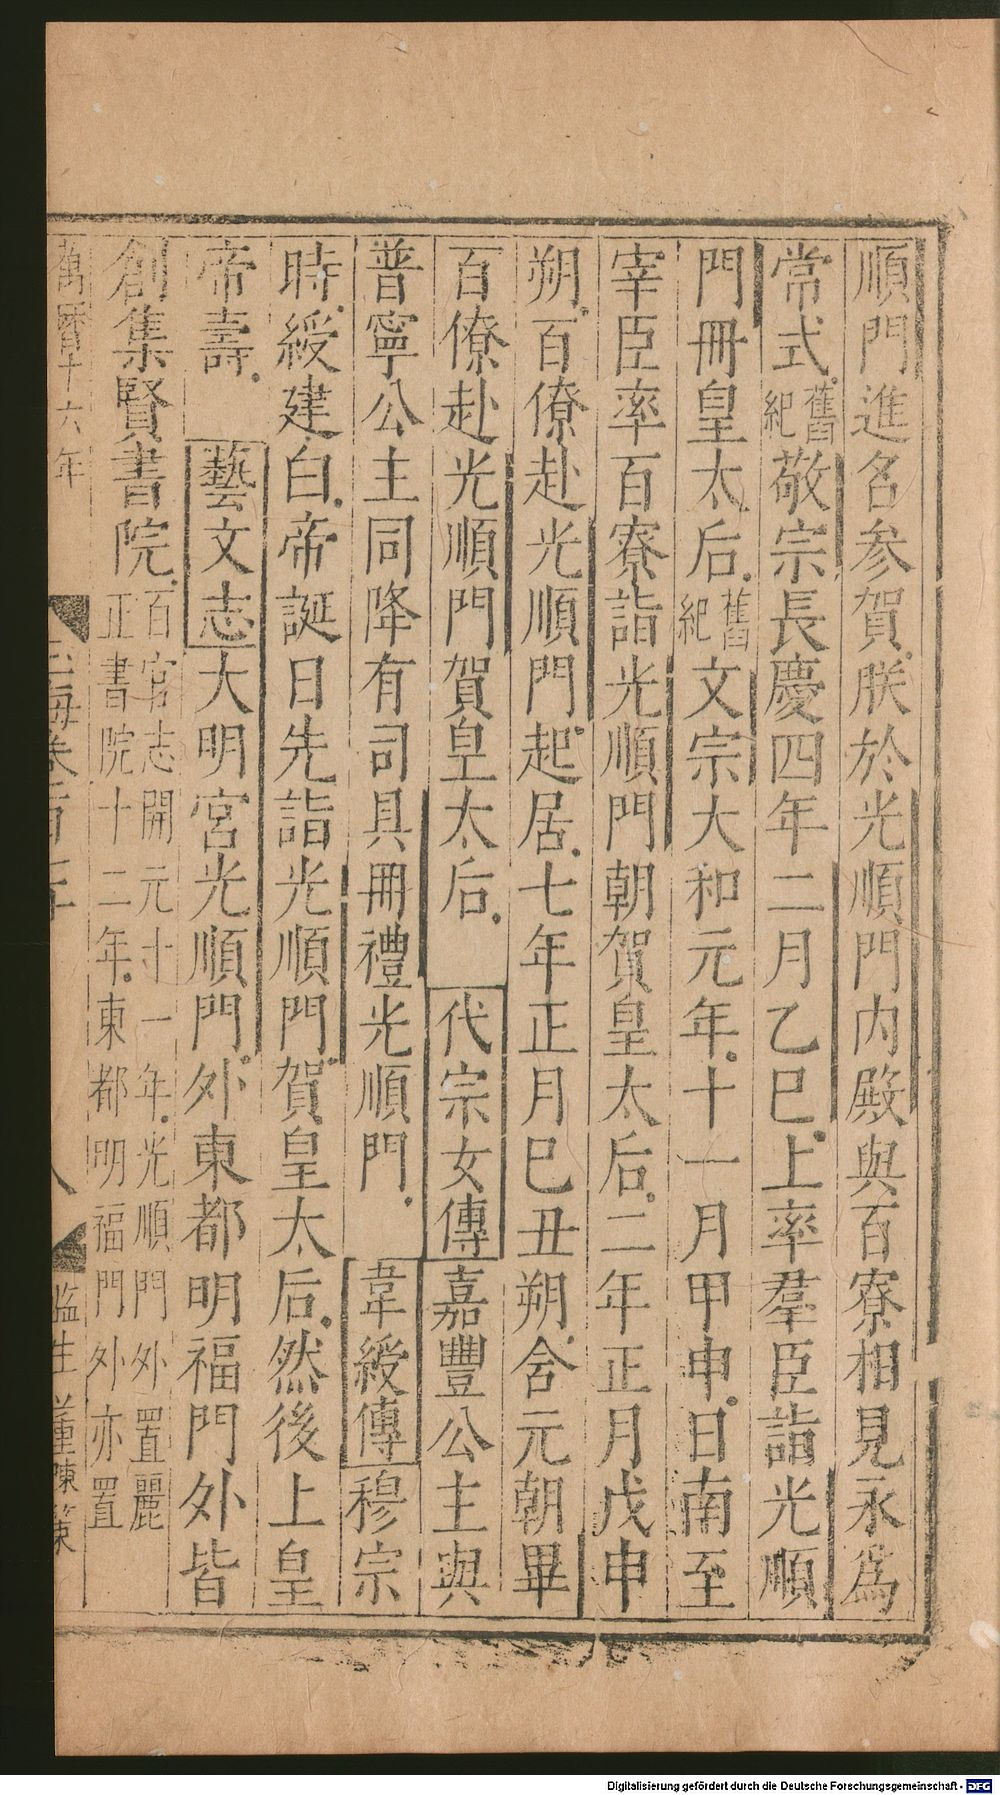 順門進名参賀朕於光順門内殿與百寮相見永爲
常式舊紀敬宗長慶四年二月乙巳上率羣臣詣光順
門冊皇太后舊紀文宗大和元年十一月甲申日南至
宰臣率百寮詣光順門朝賀皇太后二年正月戊申
朔百僚赴光順門起居七年正月巳丑朔含元朝畢
百僚赴光順門賀皇太后 代宗女傳嘉豐公主與
普寧公主同降有司具冊禮光順門 韋綬傳穆宗
時綬建白帝誕日先詣光順門賀皇太后然後上皇
帝壽 藝文志大明宮光順門外東都明福門外皆
創集賢書院百官志開元十一年光順門外置麗
正書院十二年東都明福門外亦置
萬曆十六年 玉海卷 八 監生董陳策
Digitalisierung gefördert durch die Deutsche Forschungsgemeinschaft - DFG